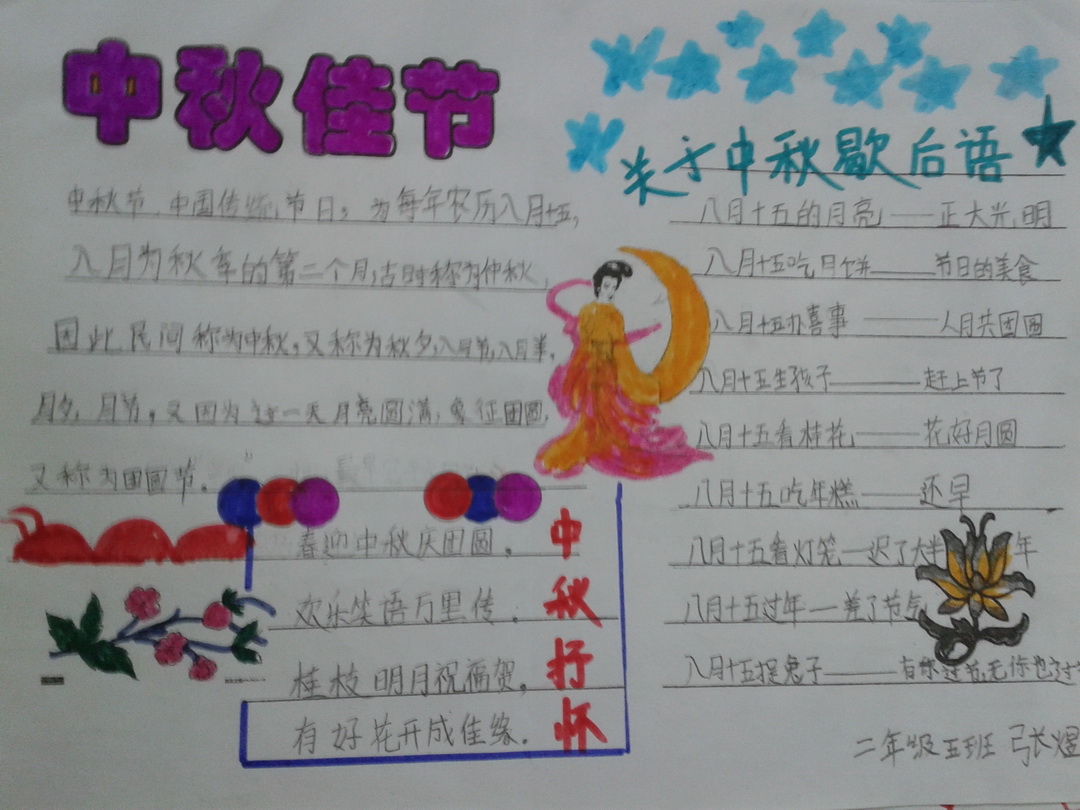 中秋佳节
中秋节,中国传统节日;为每年农历八月十五,
八月为秋季的第二个月,古时称为仲秋,
因此民间称为中秋,又称为秋夕,八月节,八月半,
月夕,月节,又因为这一天月亮圆满,象征团圆,
又称为团圆节。
春迎中秋庆团圆,
欢乐笑语万里传.
桂枝明月祝福贺,
有好花开成佳缘.
中秋抒怀
关于中秋歇后语
八月十五的月亮——正大光明
八月十五吃月饼——节日的美食
八月十五办喜事——人月共团圆
八月十五生孩子——赶上节了
八月十五看桂花——花好月圆
八月十五吃年糕——还早
八月十五看灯笼—迟了大半年
八月十五过年—差了节气
八月十五捉兔子——有你过节,无你也过节
二年级五班